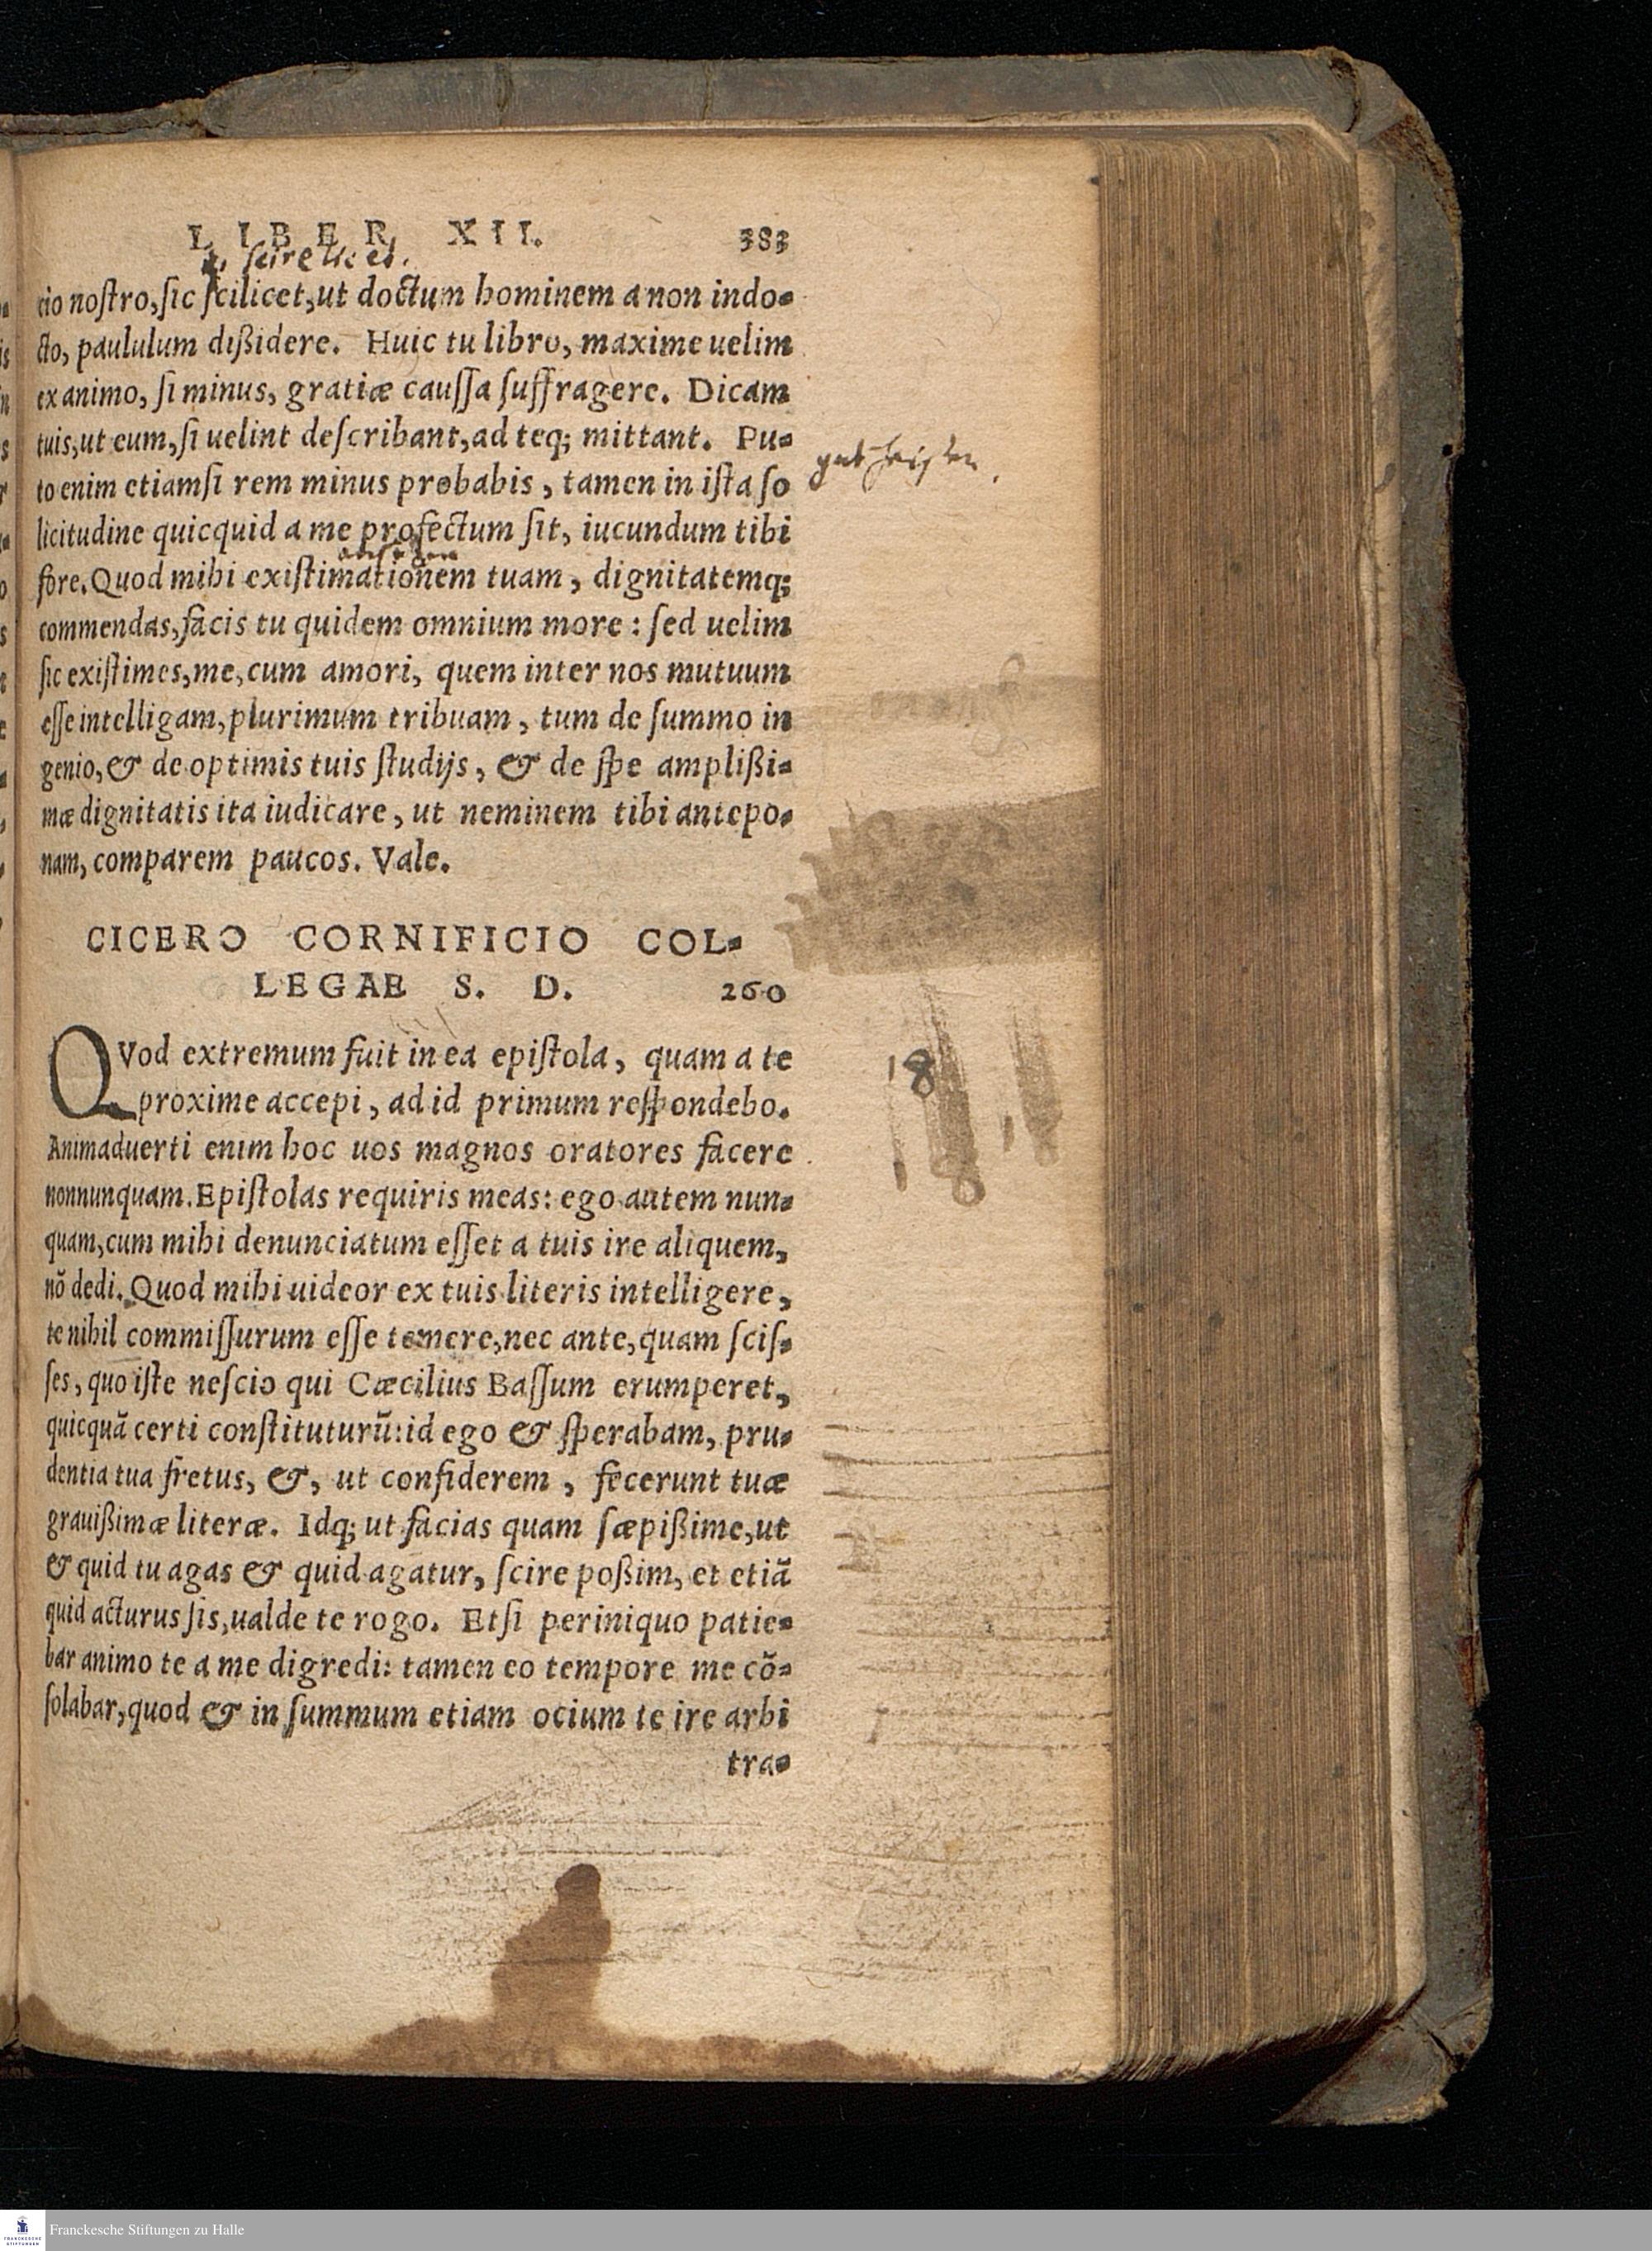 LIBER XII. 383
i, scire licet.
cio nostro, sic scilicet, ut doctum hominem a non indo-
cto, paululum dißidere. Huic tu libro, maxime uelim
ex animo, si minus, gratiæ caussa suffragere. Dicam
tuis, ut eum, si uelint describant, ad teq; mittant. Pu-
to enim etiamsi rem minus probabis, tamen in ista so
licitudine quicquid a me profectum sit, iucundum tibi
fore. Quod mihi existimationem tuam, dignitatemq;
commendas, facis tu quidem omnium more: sed uelim
sic existimes, me, cum amori, quem inter nos mutuum
esse intelligam, plurimum tribuam, tum de summo in
genio, & de optimis tuis studijs, & de spe amplißi-
mæ dignitatis ita iudicare, ut neminem tibi antepo-
nam, comparem paucos. Vale.
CICERO CORNIFICIO COL-
LEGAE S. D. 260
QVod extremum fuit in ea epistola, quam a te
18
proxime accepi, ad id primum respondebo.
Animaduerti enim hoc uos magnos oratores facere
nonnunquam. Epistolas requiris meas: ego autem nun-
quam, cum mihi denunciatum esset a tuis ire aliquem,
nõ dedi. Quod mihi uideor ex tuis literis intelligere,
te nihil commissurum esse temere, nec ante, quam scis-
ses, quo iste nescio qui Cæcilius Bassum erumperet,
quicquã certi constituturũ: id ego & sperabam, pru-
dentia tua fretus, &, ut confiderem, fecerunt tuæ
grauißimæ literæ. Idq; ut facias quam sæpißime, ut
& quid tu agas & quid agatur, scire poßim, et etiã
quid acturus sis, ualde te rogo. Etsi periniquo patie-
bar animo te a me digredi: tamen eo tempore me cõ-
solabar, quod & in summum etiam ocium te ire arbi
tra-
Franckesche Stiftungen zu Halle
FRANCKESCHE
STIFTUNGEN